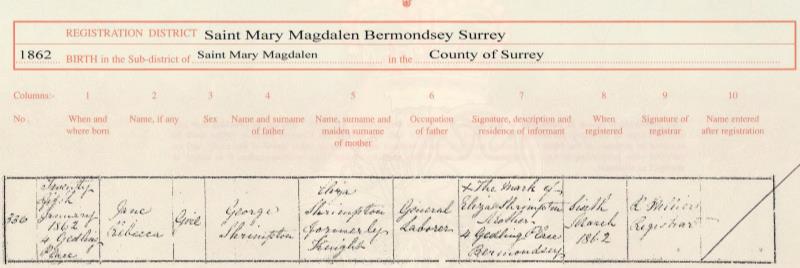 REGISTRATION DISTRICT Saint Mary Magdalen Bermondsey Surrey
1862 BIRTH in the Sub-district of Saint Mary Magdalen in the County of Surrey
Columns:- 1 2 3 4 5 6 7 8 9 10
No. When and where born Name, if any Sex Name and surname of father Name, surname and maiden surname of mother Occupation of father Signature, description and residence of informant When registered Signature of registrar Name entered after registration
336
Twenty
fifth
January
1862
4 Gedling
Place
Jane
Rebecca
Girl
George
Shrimpton
Eliza
Shrimpton
formerly
Knight
General
Laborer
x The mark of
Eliza Shrimpton
Mother
4 Gedling Place
Bermondsey
Sixth
March
1862
Registrar